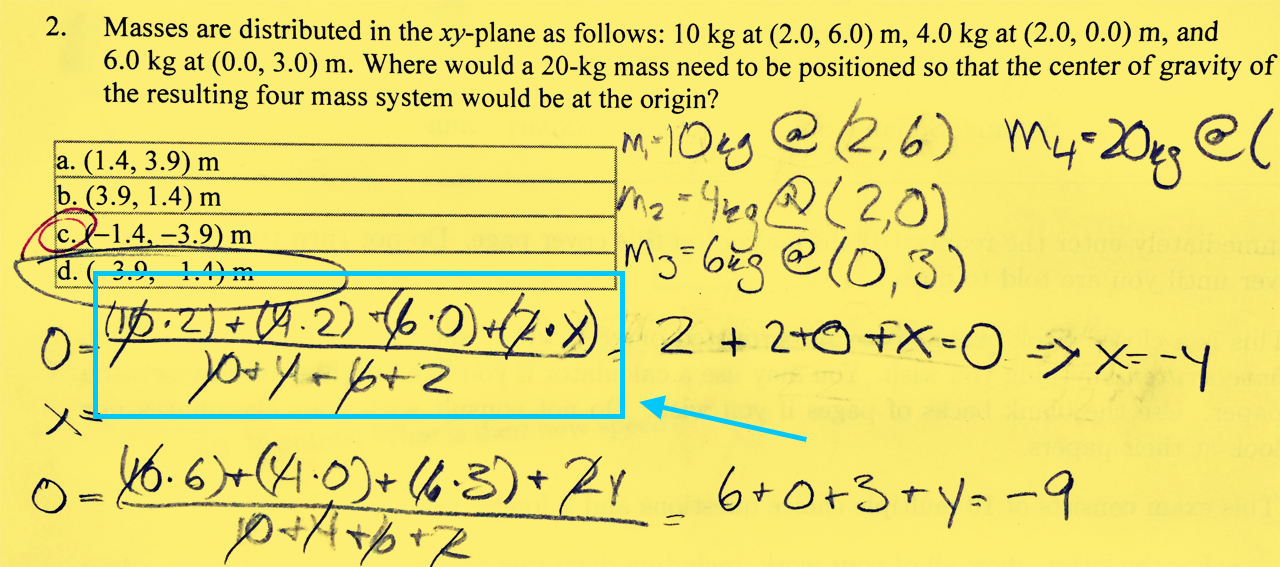 2. Masses are distributed in the xy-plane as follows: 10 kg at (2.0, 6.0) m, 4.0 kg at (2.0, 0.0) m, and
6.0 kg at (0.0, 3.0) m. Where would a 20-kg mass need to be positioned so that the center of gravity of
the resulting four mass system would be at the origin?
a. (1.4, 3.9) m
b. (3.9, 1.4) m
c. (−1.4, −3.9) m
d. (−3.9, −1.4) m
m₁=10kg @ (2,6) m₄=20kg @(
m₂=4kg @ (2,0)
m₃=6kg @ (0,3)
0= (10·2)+(4·2)+(6·0)+(2·x) = 2+2+0+x=0 => x=-4
10+4+6+2
x=
0= (10·6)+(4·0)+(6·3)+2y = 6+0+3+y=-9
10+4+6+2